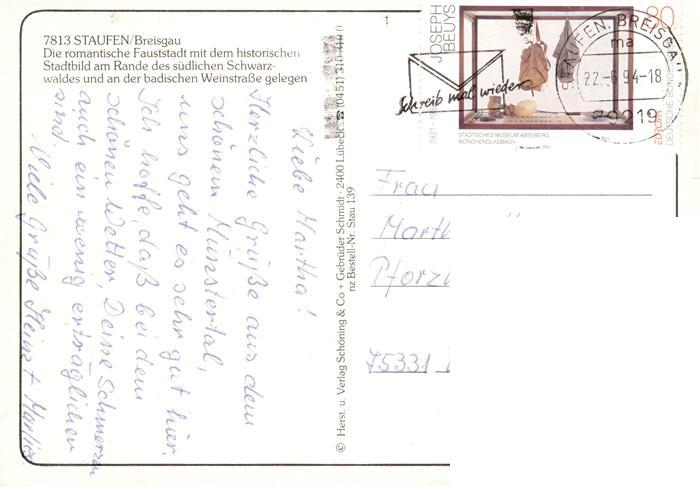 7813 STAUFEN/Breisgau
Die romantische Fauststadt mit dem historischen
Stadtbild am Rande des südlichen Schwarz-
waldes und an der badischen Weinstraße gelegen
Liebe Martha!
Herzliche Grüße aus dem
schönen Münstertal,
uns geht es sehr gut hier.
Ich hoffe, daß bei dem
schönen Wetter, Deine Schmerzen
auch ein wenig erträglicher
sind.
Viele Grüße Heinz +
© Herst. u. Verlag Schöning & Co + Gebrüder Schmidt · 2400 Lübeck
(0451) 310
nz Bestell-Nr. Stau 139
1
JOSEPH
BEUYS
1921-
STÄDTISCHES MUSEUM ABTEIBERG
MÖNCHENGLADBACH
80
EUROPA
DEUTSCHE BUNDE
Schreib mal wieder
STAUFEN, BREISGAU
ma
22.-6.94-18
79219
Frau
Marth
Pforz
75331